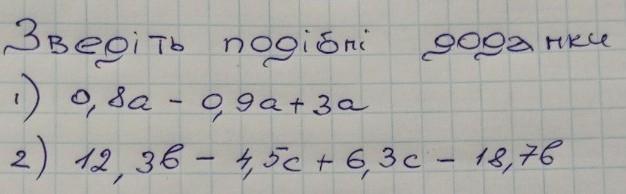 Зведіть подібні доданки
1) 0,8a - 0,9a + 3a
2) 12,3в - 4,5с + 6,3с - 18,7в